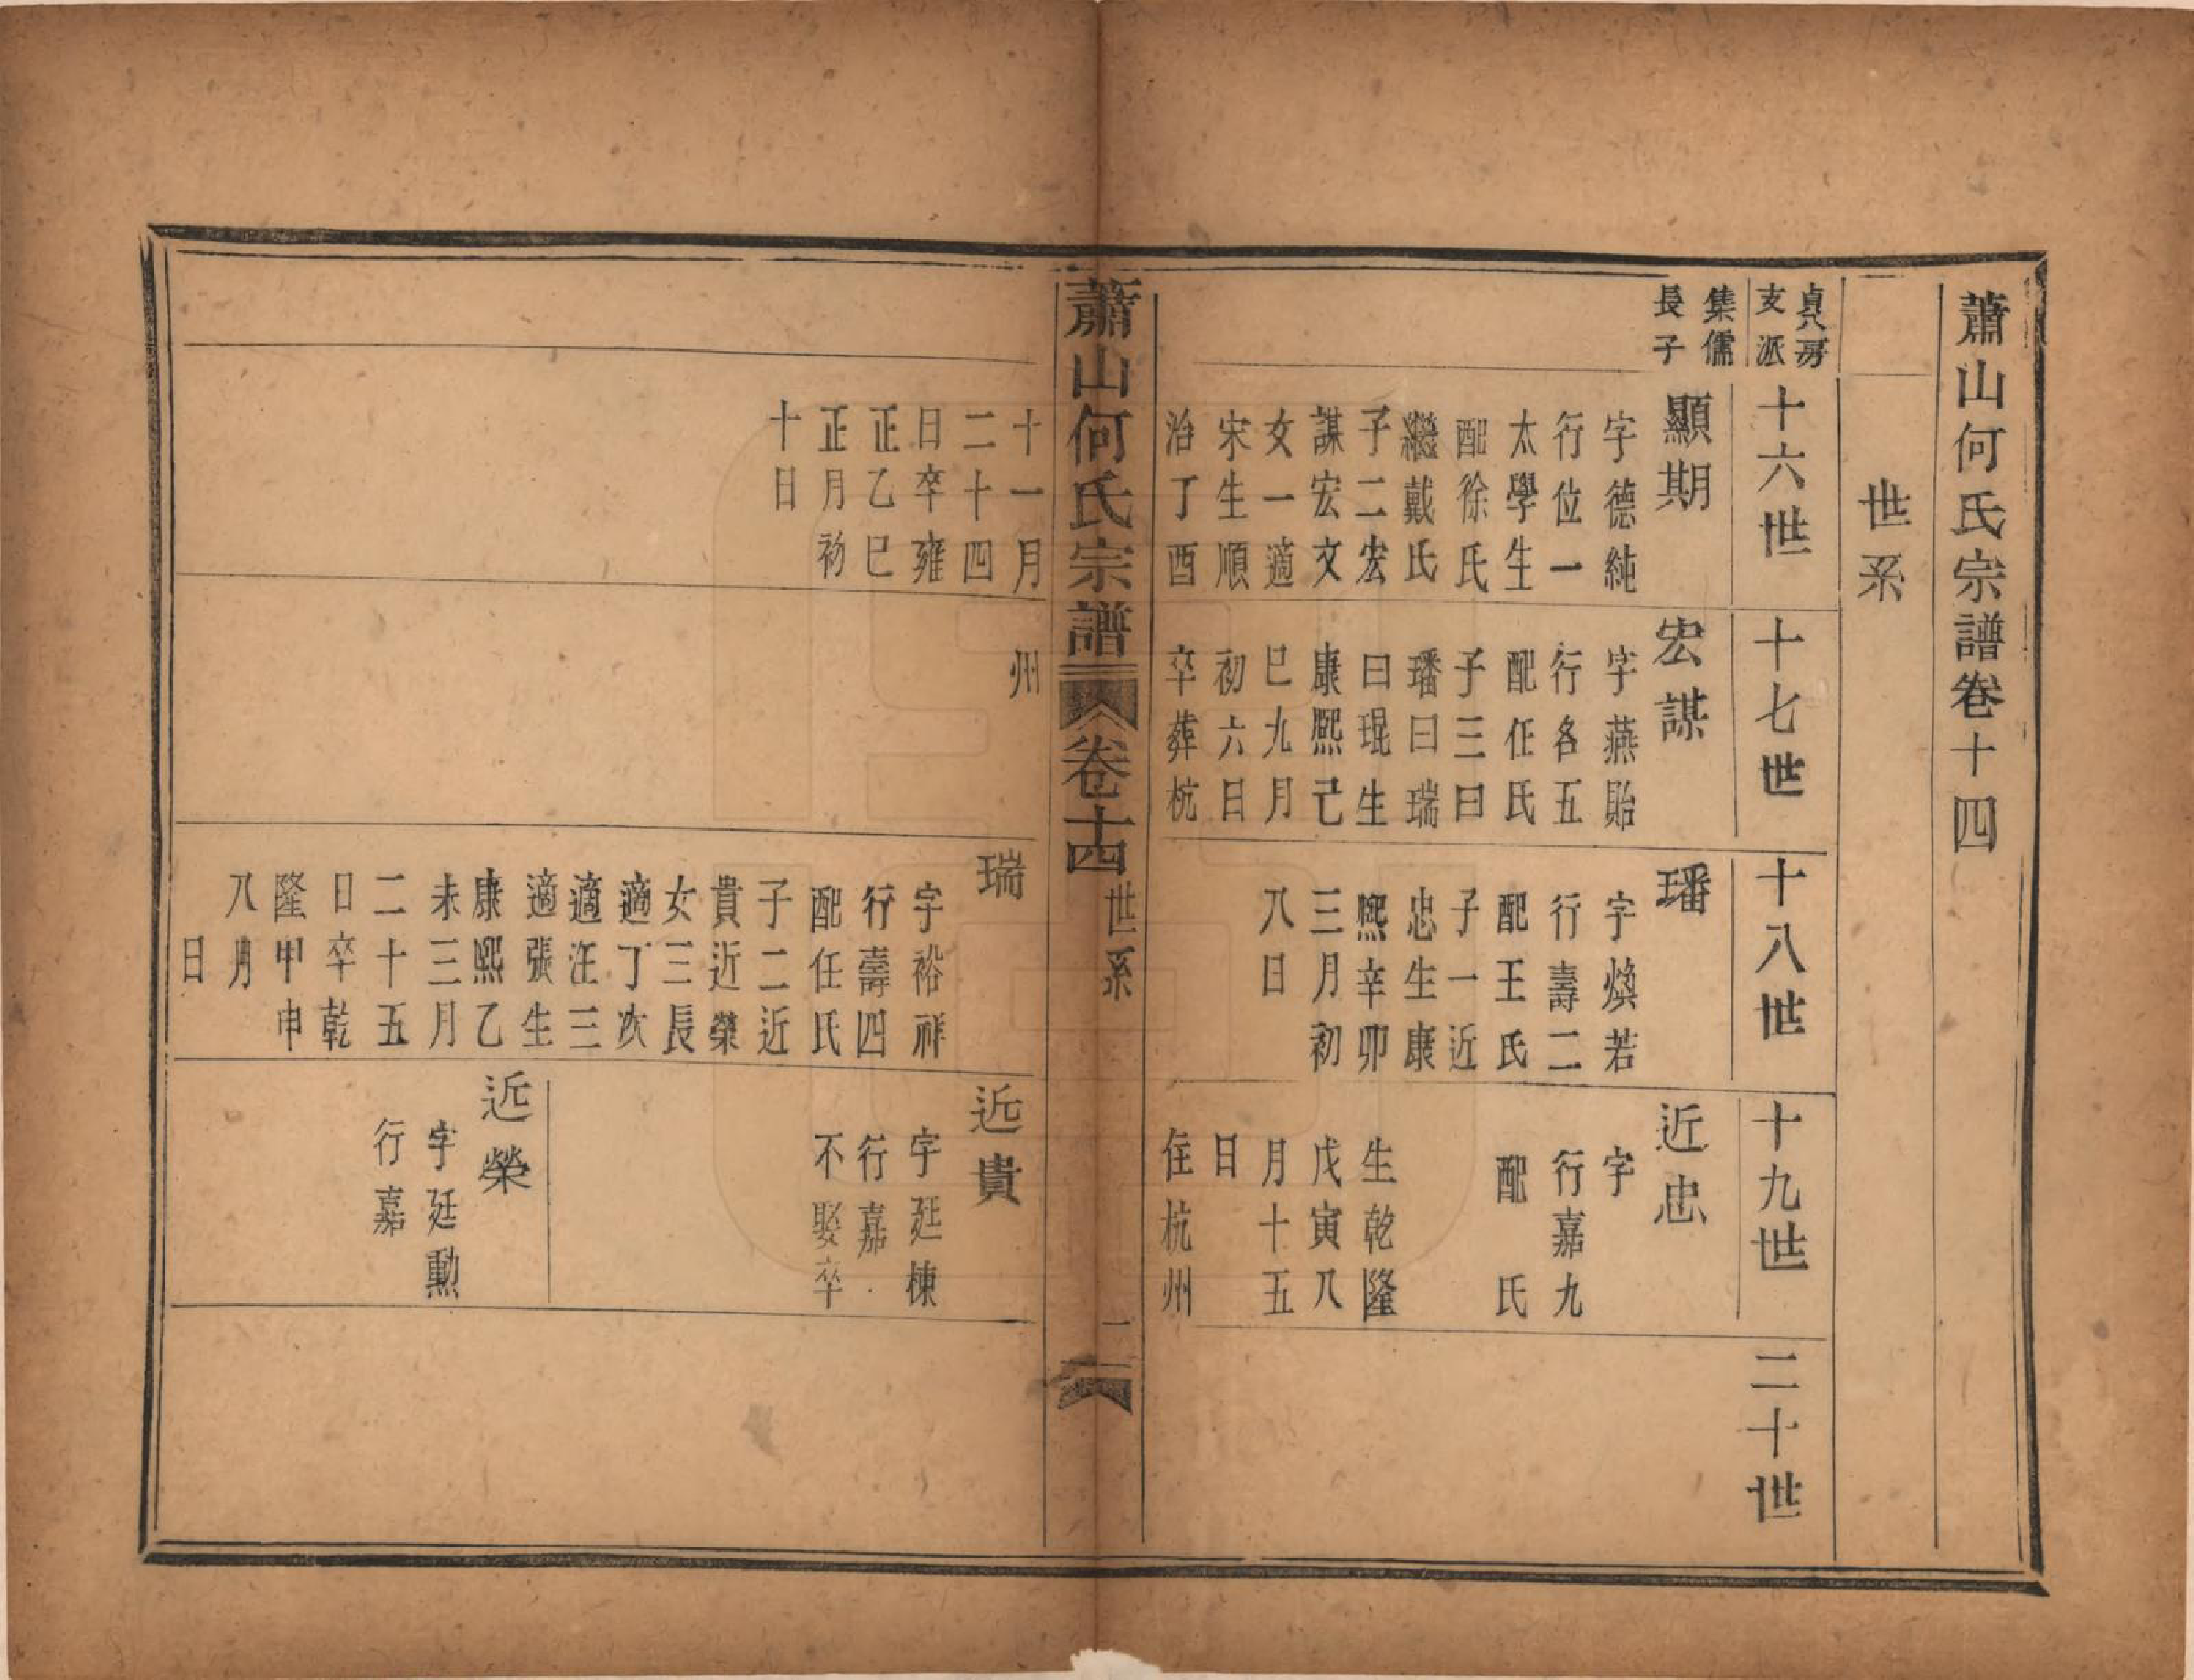 蕭山何氏宗譜卷十四
世系
貞房
支派
十六世
十七世
十八世
十九世
二十世
集儒
長子
顯期
字德純
行位一
太學生
配徐氏
繼戴氏
子二宏
謀宏文
女一適
宋生順
治丁酉
十一月
二十四
日卒雍
正乙巳
正月初
十日
宏謀
字燕貽
行各五
配任氏
子三曰
璠曰瑞
曰琨生
康熙己
巳九月
初六日
卒葬杭
州
璠
字煥若
行壽二
配王氏
子一近
忠生康
熙辛卯
三月初
八日
近忠
字
行嘉九
配氏
生乾隆
戊寅八
月十五
日
住杭州
蕭山何氏宗譜
卷十四
世系
二
瑞
字裕祥
行壽四
配任氏
子二近
貴近榮
女三長
適丁次
適汪三
適張生
康熙乙
未三月
二十五
日卒乾
隆甲申
八月
日
近貴
字廷棟
行嘉
不娶卒
近榮
字廷勳
行嘉